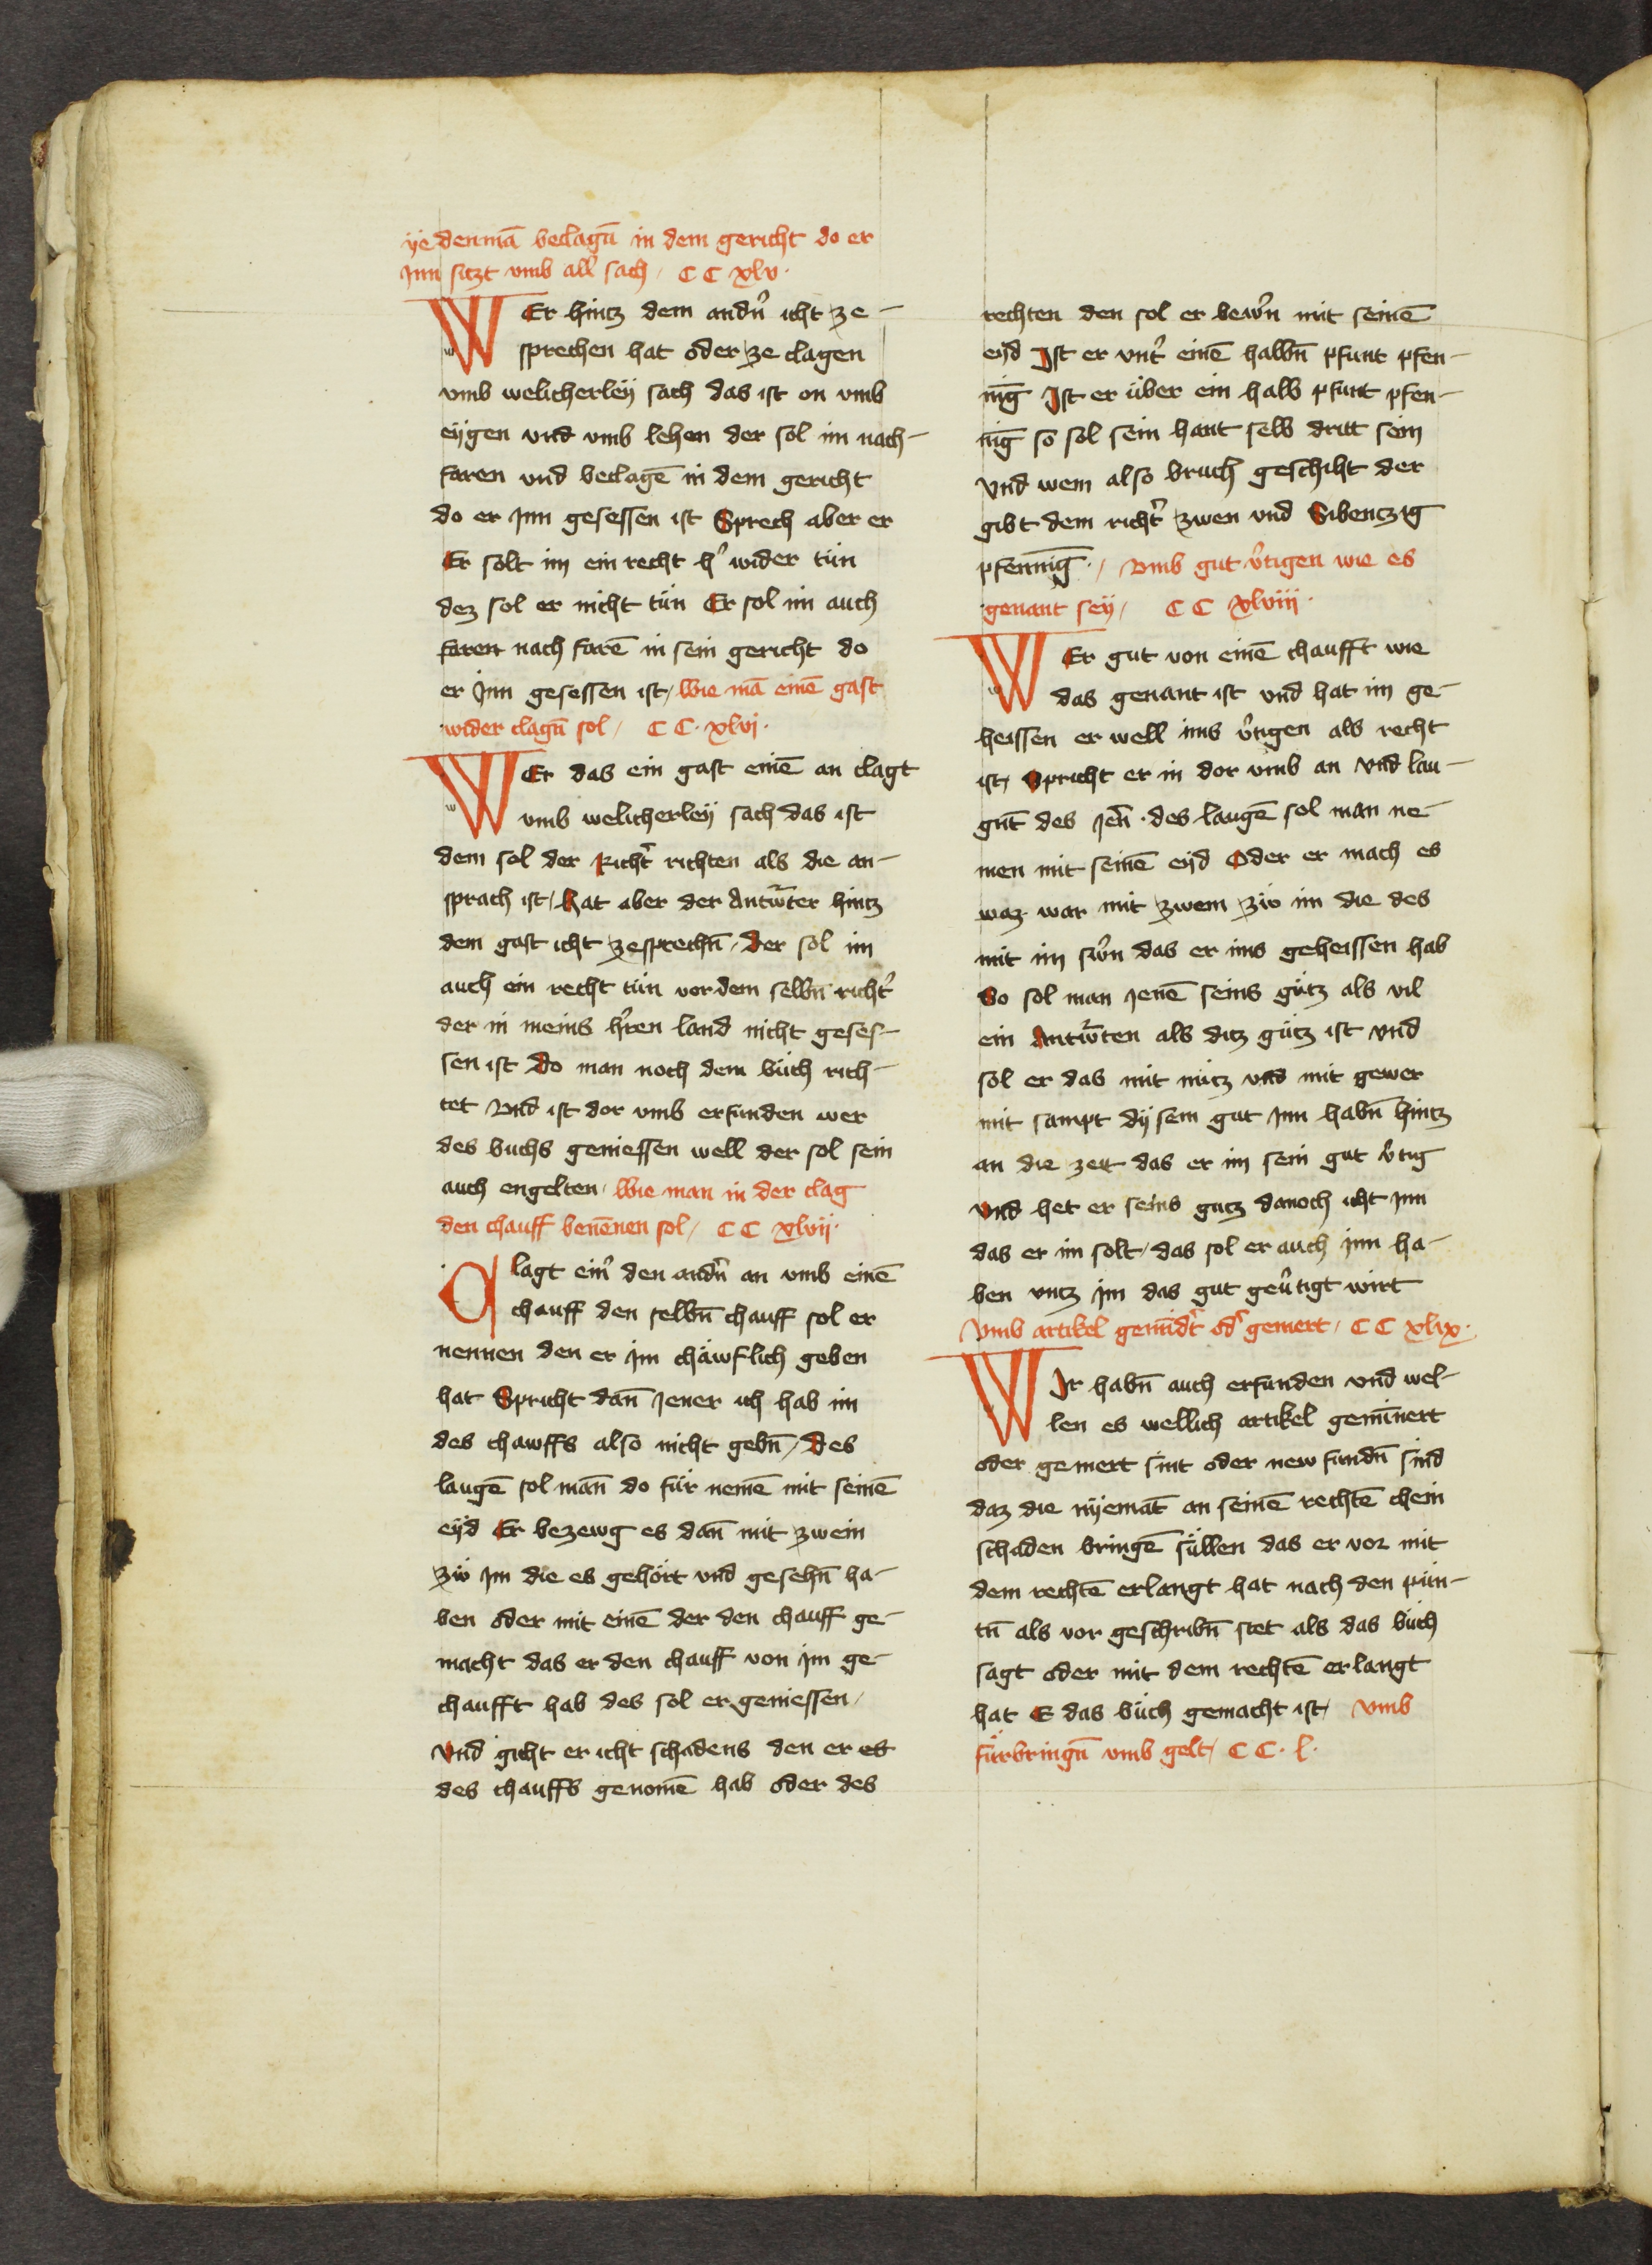 ÿedenmā beclagū in dem gericht do er
Jnn siczt vmb all̉ sach / C C xlv ·
WEr hintz dem andn̉ icht ze-
sprechen hat oder ze clagen
vmb welicherleÿ sach das ist on vmb
eÿgen vnd vmb lehen der sol im nach-
faren vnd beclagē in dem gericht
do er Jnn gesessen ist Sprech aber er
Er solt im ein recht h̉ wider tün
dez sol er nicht tün Er sol im auch
faren nach farē in sein gericht do
er Jnn gesessen ist / Wie mā einē gast
wider clagū sol / C C · xlvj ·
WEr das ein gast einē an clagt
vmb welicherleÿ sach das ist
dem sol der Richt̉ richten als die an-
sprach ist / Hat aber der Antw̄rter hintz
dem gast icht zesprechn̄ / der sol im
auch ein recht tün vor dem selbn̄ richt̉
der in meins h̉ren land nicht geses-
sen ist Do man noch dem büch rich-
tet Vnd ist dor vmb erfunden wer
des buchs geniessen well der sol sein
auch engelten / Wie man in der clag
den chauff benēnen sol / C C xlvij ·
Clagt ein̉ den andn̉ an vmb einē
chauff den selbn̄ chauff sol er
nennen den er Jm chäwflich geben
hat Spricht dan̄ Jener ich hab im
des chawffs also nicht gebn̄ / Des
laugē sol man̄ do für nemē mit seinē
eÿd Er bezewg es dan̄ mit zwein
zẘ Jm die es gehört vnd gesehn̄ ha-
ben oder mit einē der den chauff ge-
macht das er den chauff von Jm ge-
chaufft hab des sol er geniessen /
Vnd gicht er icht schadens den er es
des chauffs genomē hab oder des
rechten den sol er bewr̉n mit seinē
eÿd Jst er vnt̉ einē halbn̄ pfunt pfen-
niḡ Jst er über ein halb pfunt pfen-
niḡ so sol sein hant selb dritt sein
Vnd wem also bruch̉ geschiht der
gibt dem richt̉ zwen vnd Sibenczig
pfenniḡ · / Vmb gut v̉tigen wie es
genant seÿ / C C xlviij ·
WEr gut von einē chaufft wie
das genant ist vnd hat im ge-
heissen er well ims v̉tigen als recht
ist / Spricht er in dor vmb an Vnd lau-
gnt̄ des Jen̉ · des laugē sol man ne-
men mit seinē eÿd Oder er mach es
waz war mit zwem zẘ im die des
mit im sw̉n das er ims geheissen hab
So sol man Jenē seins gütz als vil
ein Antw̄rten als ditz gütz ist vnd
sol er das mit nütz vnd mit gewer
mit sampt dÿsem gut Jnn habn̄ hintz
an die zeit das er im sein gut v̉tig
Vnd het er seins gutz danoch icht Jnn
das er im solt / das sol er auch Jnn ha-
ben vntz Jm das gut gev̉tigt wirt
Vmb artikel gemīdt̉ od̉ gemert / C C xlix ·
WJr habn̄ auch erfunden vnd wel-
len es wellich artikel gemīnert
oder gemert sint oder new fundn̄ sind
daz die nÿemāt an seinē rechtē chein
schaden bringē süllen das er vor mit
dem rechtē erlangt hat nach den pün-
tn̄ als vor geschribn̄ stet als das büch
sagt oder mit dem rechtē erlangt
hat E das büch gemacht ist / Vmb
fürbringū vmb gelt / C C · l ·